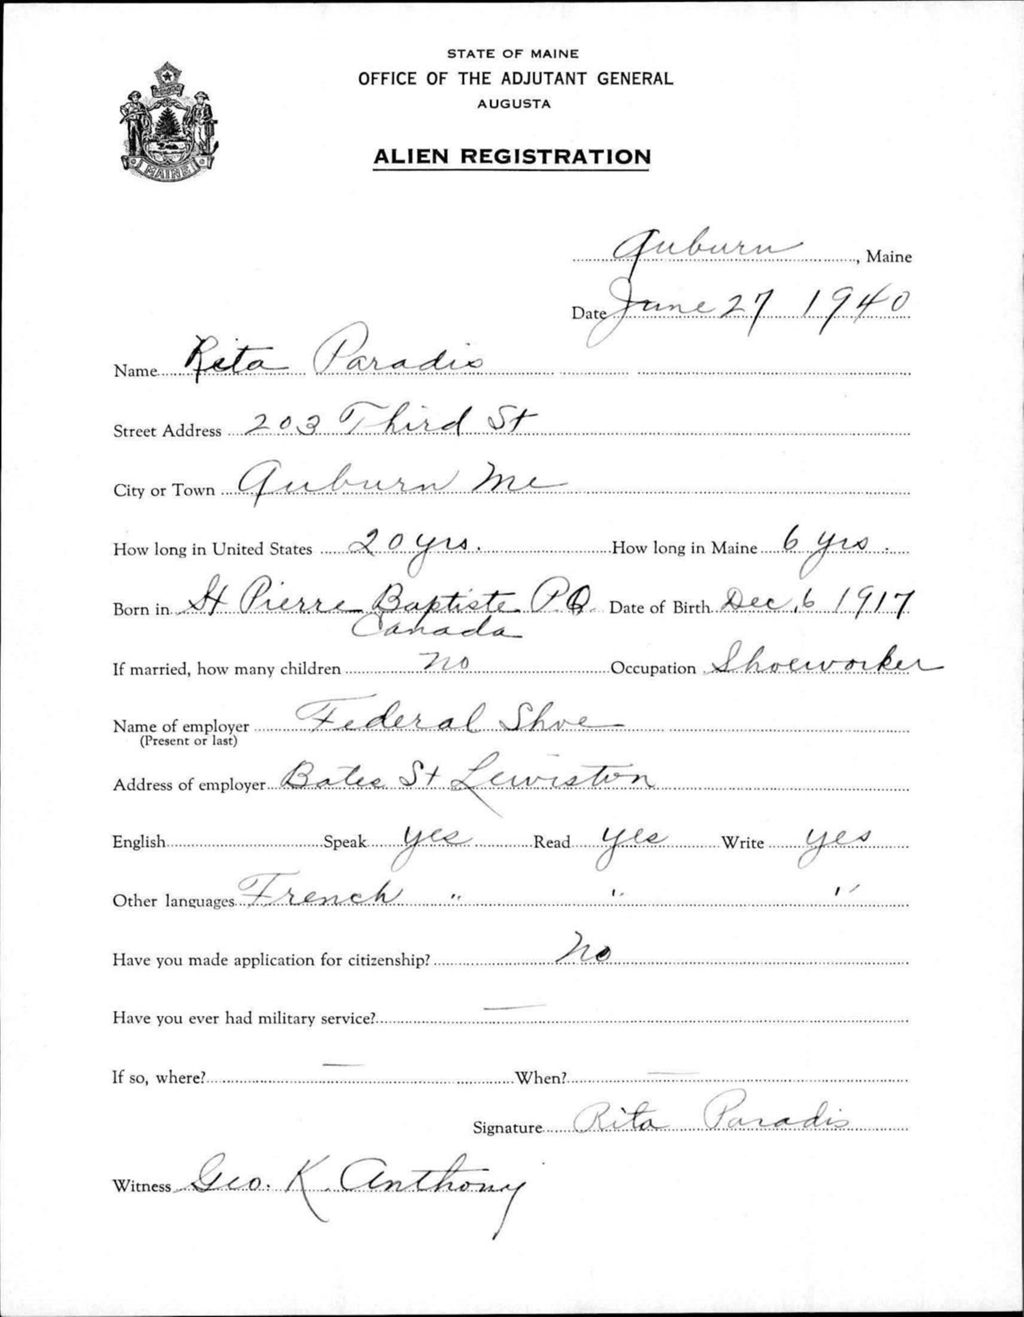 STATE OF MAINE
OFFICE OF THE ADJUTANT GENERAL
AUGUSTA
ALIEN REGISTRATION
MAINE
Auburn, Maine
Date June 27 1940
Name Rita Paradis
Street Address 203 Third St
City or Town Auburn Me
How long in United States 20 yrs. How long in Maine 6 yrs.
Born in St Pierre Baptiste P.Q. Date of Birth Dec, 6 1917
Canada
If married, how many children no Occupation Shoeworker
Name of employer Federal Shoe
(Present or last)
Address of employer Bates St Lewiston
English Speak yes Read yes Write yes
Other languages French " " "
Have you made application for citizenship? No
Have you ever had military service? —
If so, where? — When? —
Signature Rita Paradis
Witness Geo. K. Anthony